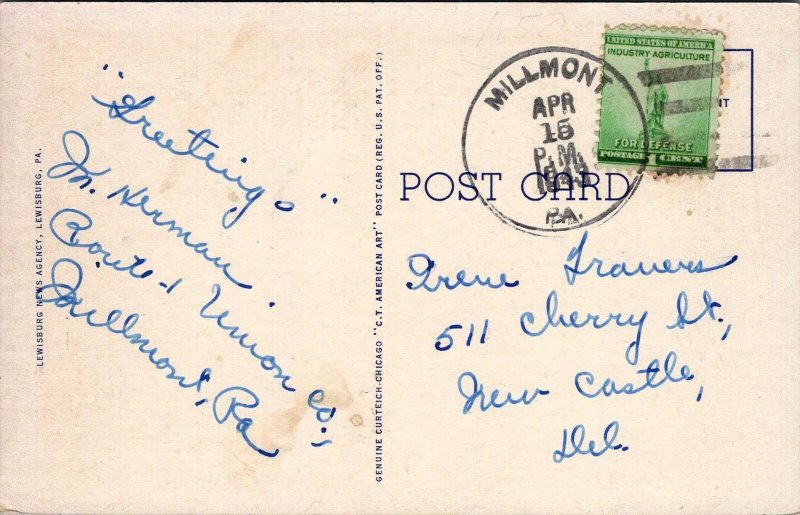 LEWISBURG NEWS AGENCY, LEWISBURG, PA.
"Greetings"
M. Herman
Route 1 Union Co.,
Millmont, Pa
GENUINE CURTEICH-CHICAGO "C.T. AMERICAN ART" POST CARD (REG. U.S. PAT. OFF.)
1.50
MILLMONT
APR
15
P.M.
1943
PA.
UNITED STATES OF AMERICA
INDUSTRY·AGRICULTURE
FOR DEFENSE
POSTAGE 1 CENT
POST CARD
Irene Travers
511 Cherry St.,
New Castle,
Del.